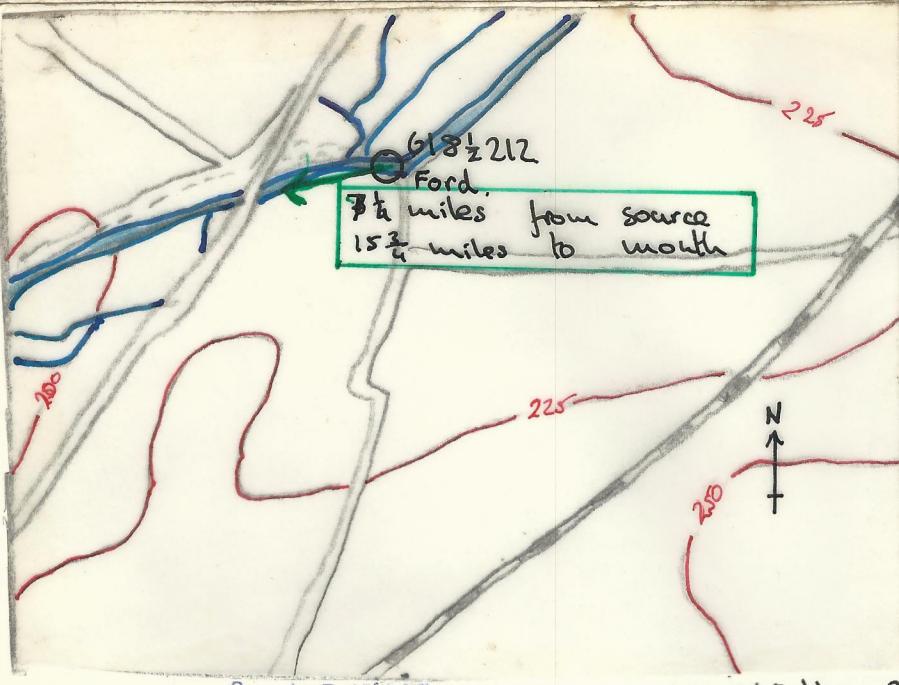 225
618½212
Ford.
¼ miles from source
15¾ miles to mouth
200
225
N
250